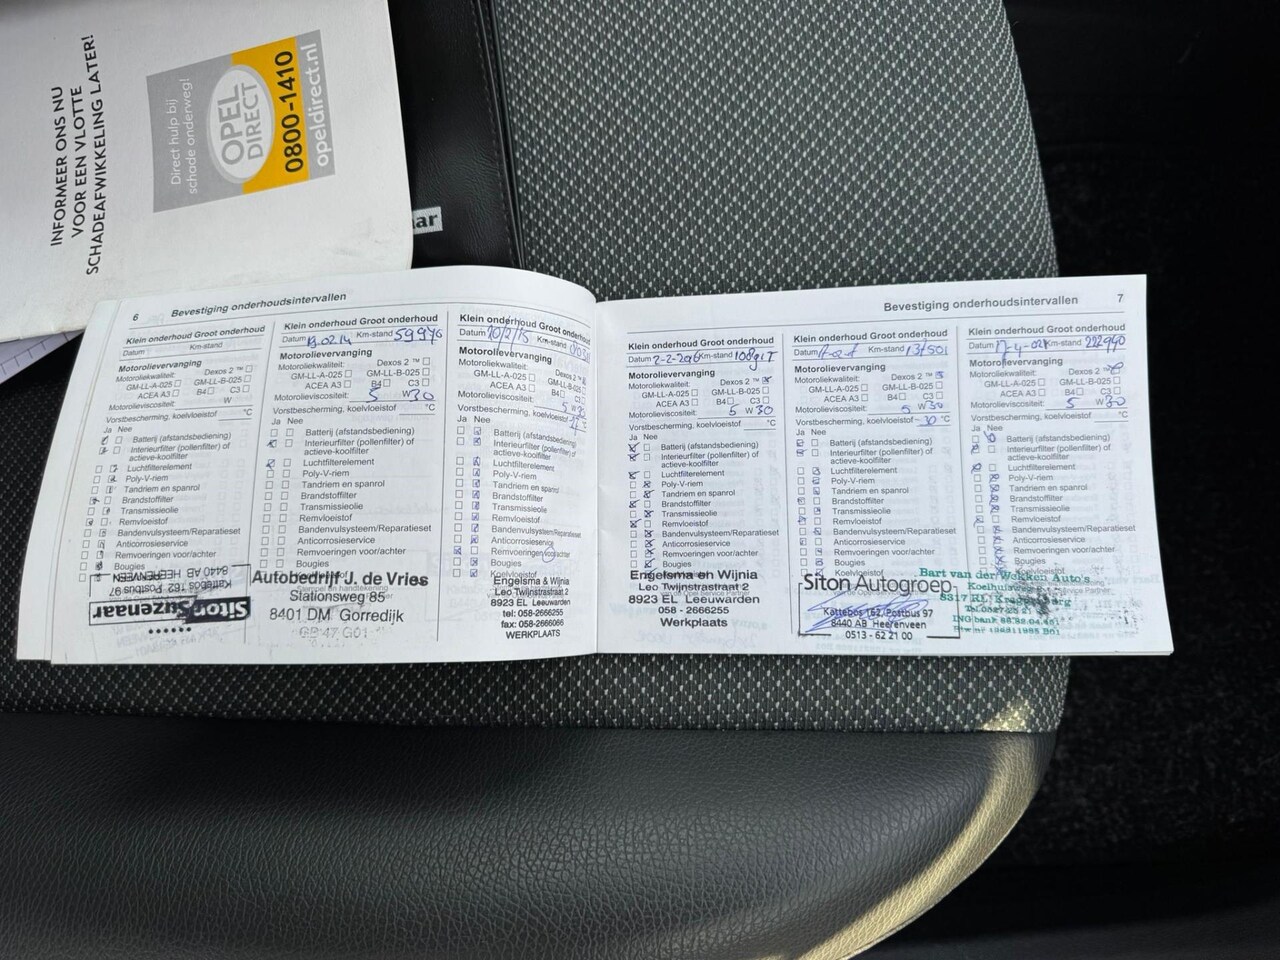 INFORMEER ONS NU
VOOR EEN VLOTTE
SCHADEAFWIKKELING LATER!
Direct hulp bij
schade onderweg!
OPEL
DIRECT
0800-1410
opeldirect.nl
6 Bevestiging onderhoudsintervallen
Klein onderhoud Groot onderhoud
Datum Km-stand
Motorolievervanging
Motoroliekwaliteit: Dexos 2 ™
GM-LL-A-025 GM-LL-B-025
ACEA A3 B4 C3
Motorolieviscositeit: W
Vorstbescherming, koelvloeistof °C
Ja Nee
Batterij (afstandsbediening)
Interieurfilter (pollenfilter) of
actieve-koolfilter
Luchtfilterelement
Poly-V-riem
Tandriem en spanrol
Brandstoffilter
Transmissieolie
Remvloeistof
Bandenvulsysteem/Reparatieset
Anticorrosieservice
Remvoeringen voor/achter
Bougies
Siton Suzenaar
Kattebos 162, Postbus 97
8440 AB HEERENVEEN
Klein onderhoud Groot onderhoud
Datum 13.02.14 Km-stand 59976
Motorolievervanging
Motoroliekwaliteit: Dexos 2 ™
GM-LL-A-025 GM-LL-B-025
ACEA A3 B4 C3
Motorolieviscositeit: 5 W 30
Vorstbescherming, koelvloeistof °C
Ja Nee
Batterij (afstandsbediening)
Interieurfilter (pollenfilter) of
actieve-koolfilter
Luchtfilterelement
Poly-V-riem
Tandriem en spanrol
Brandstoffilter
Transmissieolie
Remvloeistof
Bandenvulsysteem/Reparatieset
Anticorrosieservice
Remvoeringen voor/achter
Bougies
Autobedrijf J. de Vries
Stationsweg 85
8401 DM Gorredijk
Klein onderhoud Groot onderhoud
Datum 10/2/15 Km-stand
Motorolievervanging
Motoroliekwaliteit: Dexos 2 ™
GM-LL-A-025 GM-LL-B-025
ACEA A3 B4 C3
Motorolieviscositeit: 5 W
Vorstbescherming, koelvloeistof
Ja Nee
Batterij (afstandsbediening)
Interieurfilter (pollenfilter) of
actieve-koolfilter
Luchtfilterelement
Poly-V-riem
Tandriem en spanrol
Brandstoffilter
Transmissieolie
Remvloeistof
Bandenvulsysteem/Reparatieset
Anticorrosieservice
Remvoeringen voor/achter
Bougies
Koelvloeistof
Engelsma & Wijnia
Leo Twijnstrastraat 2
8923 EL Leeuwarden
tel: 058-2666255
fax: 058-2666066
WERKPLAATS
Bevestiging onderhoudsintervallen 7
Klein onderhoud Groot onderhoud
Datum Km-stand
Motorolievervanging
Motoroliekwaliteit: Dexos 2 ™
GM-LL-A-025 GM-LL-B-025
ACEA A3 B4 C3
Motorolieviscositeit: 5 W 30
Vorstbescherming, koelvloeistof °C
Ja Nee
Batterij (afstandsbediening)
Interieurfilter (pollenfilter) of
actieve-koolfilter
Luchtfilterelement
Poly-V-riem
Tandriem en spanrol
Brandstoffilter
Transmissieolie
Remvloeistof
Bandenvulsysteem/Reparatieset
Anticorrosieservice
Remvoeringen voor/achter
Bougies
Engelsma en Wijnia
Leo Twijnstrastraat 2
8923 EL Leeuwarden
058 - 2666255
Werkplaats
Klein onderhoud Groot onderhoud
Datum Km-stand
Motorolievervanging
Motoroliekwaliteit: Dexos 2 ™
GM-LL-A-025 GM-LL-B-025
ACEA A3 B4 C3
Motorolieviscositeit: 5 W 30
Vorstbescherming, koelvloeistof -30 °C
Ja Nee
Batterij (afstandsbediening)
Interieurfilter (pollenfilter) of
actieve-koolfilter
Luchtfilterelement
Poly-V-riem
Tandriem en spanrol
Brandstoffilter
Transmissieolie
Remvloeistof
Bandenvulsysteem/Reparatieset
Anticorrosieservice
Remvoeringen voor/achter
Bougies
Koelvloeistof
Siton Autogroep
Kattebos 162, Postbus 97
8440 AB Heerenveen
0513 - 62 21 00
Klein onderhoud Groot onderhoud
Datum Km-stand 222990
Motorolievervanging
Motoroliekwaliteit: Dexos 2 ™
GM-LL-A-025 GM-LL-B-025
ACEA A3 B4 C3
Motorolieviscositeit: 5 W 30
Vorstbescherming, koelvloeistof °C
Ja Nee
Batterij (afstandsbediening)
Interieurfilter (pollenfilter) of
actieve-koolfilter
Luchtfilterelement
Poly-V-riem
Tandriem en spanrol
Brandstoffilter
Transmissieolie
Remvloeistof
Bandenvulsysteem/Reparatieset
Anticorrosieservice
Remvoeringen voor/achter
Bougies
Koelvloeistof
Bart van der Wekken Auto's